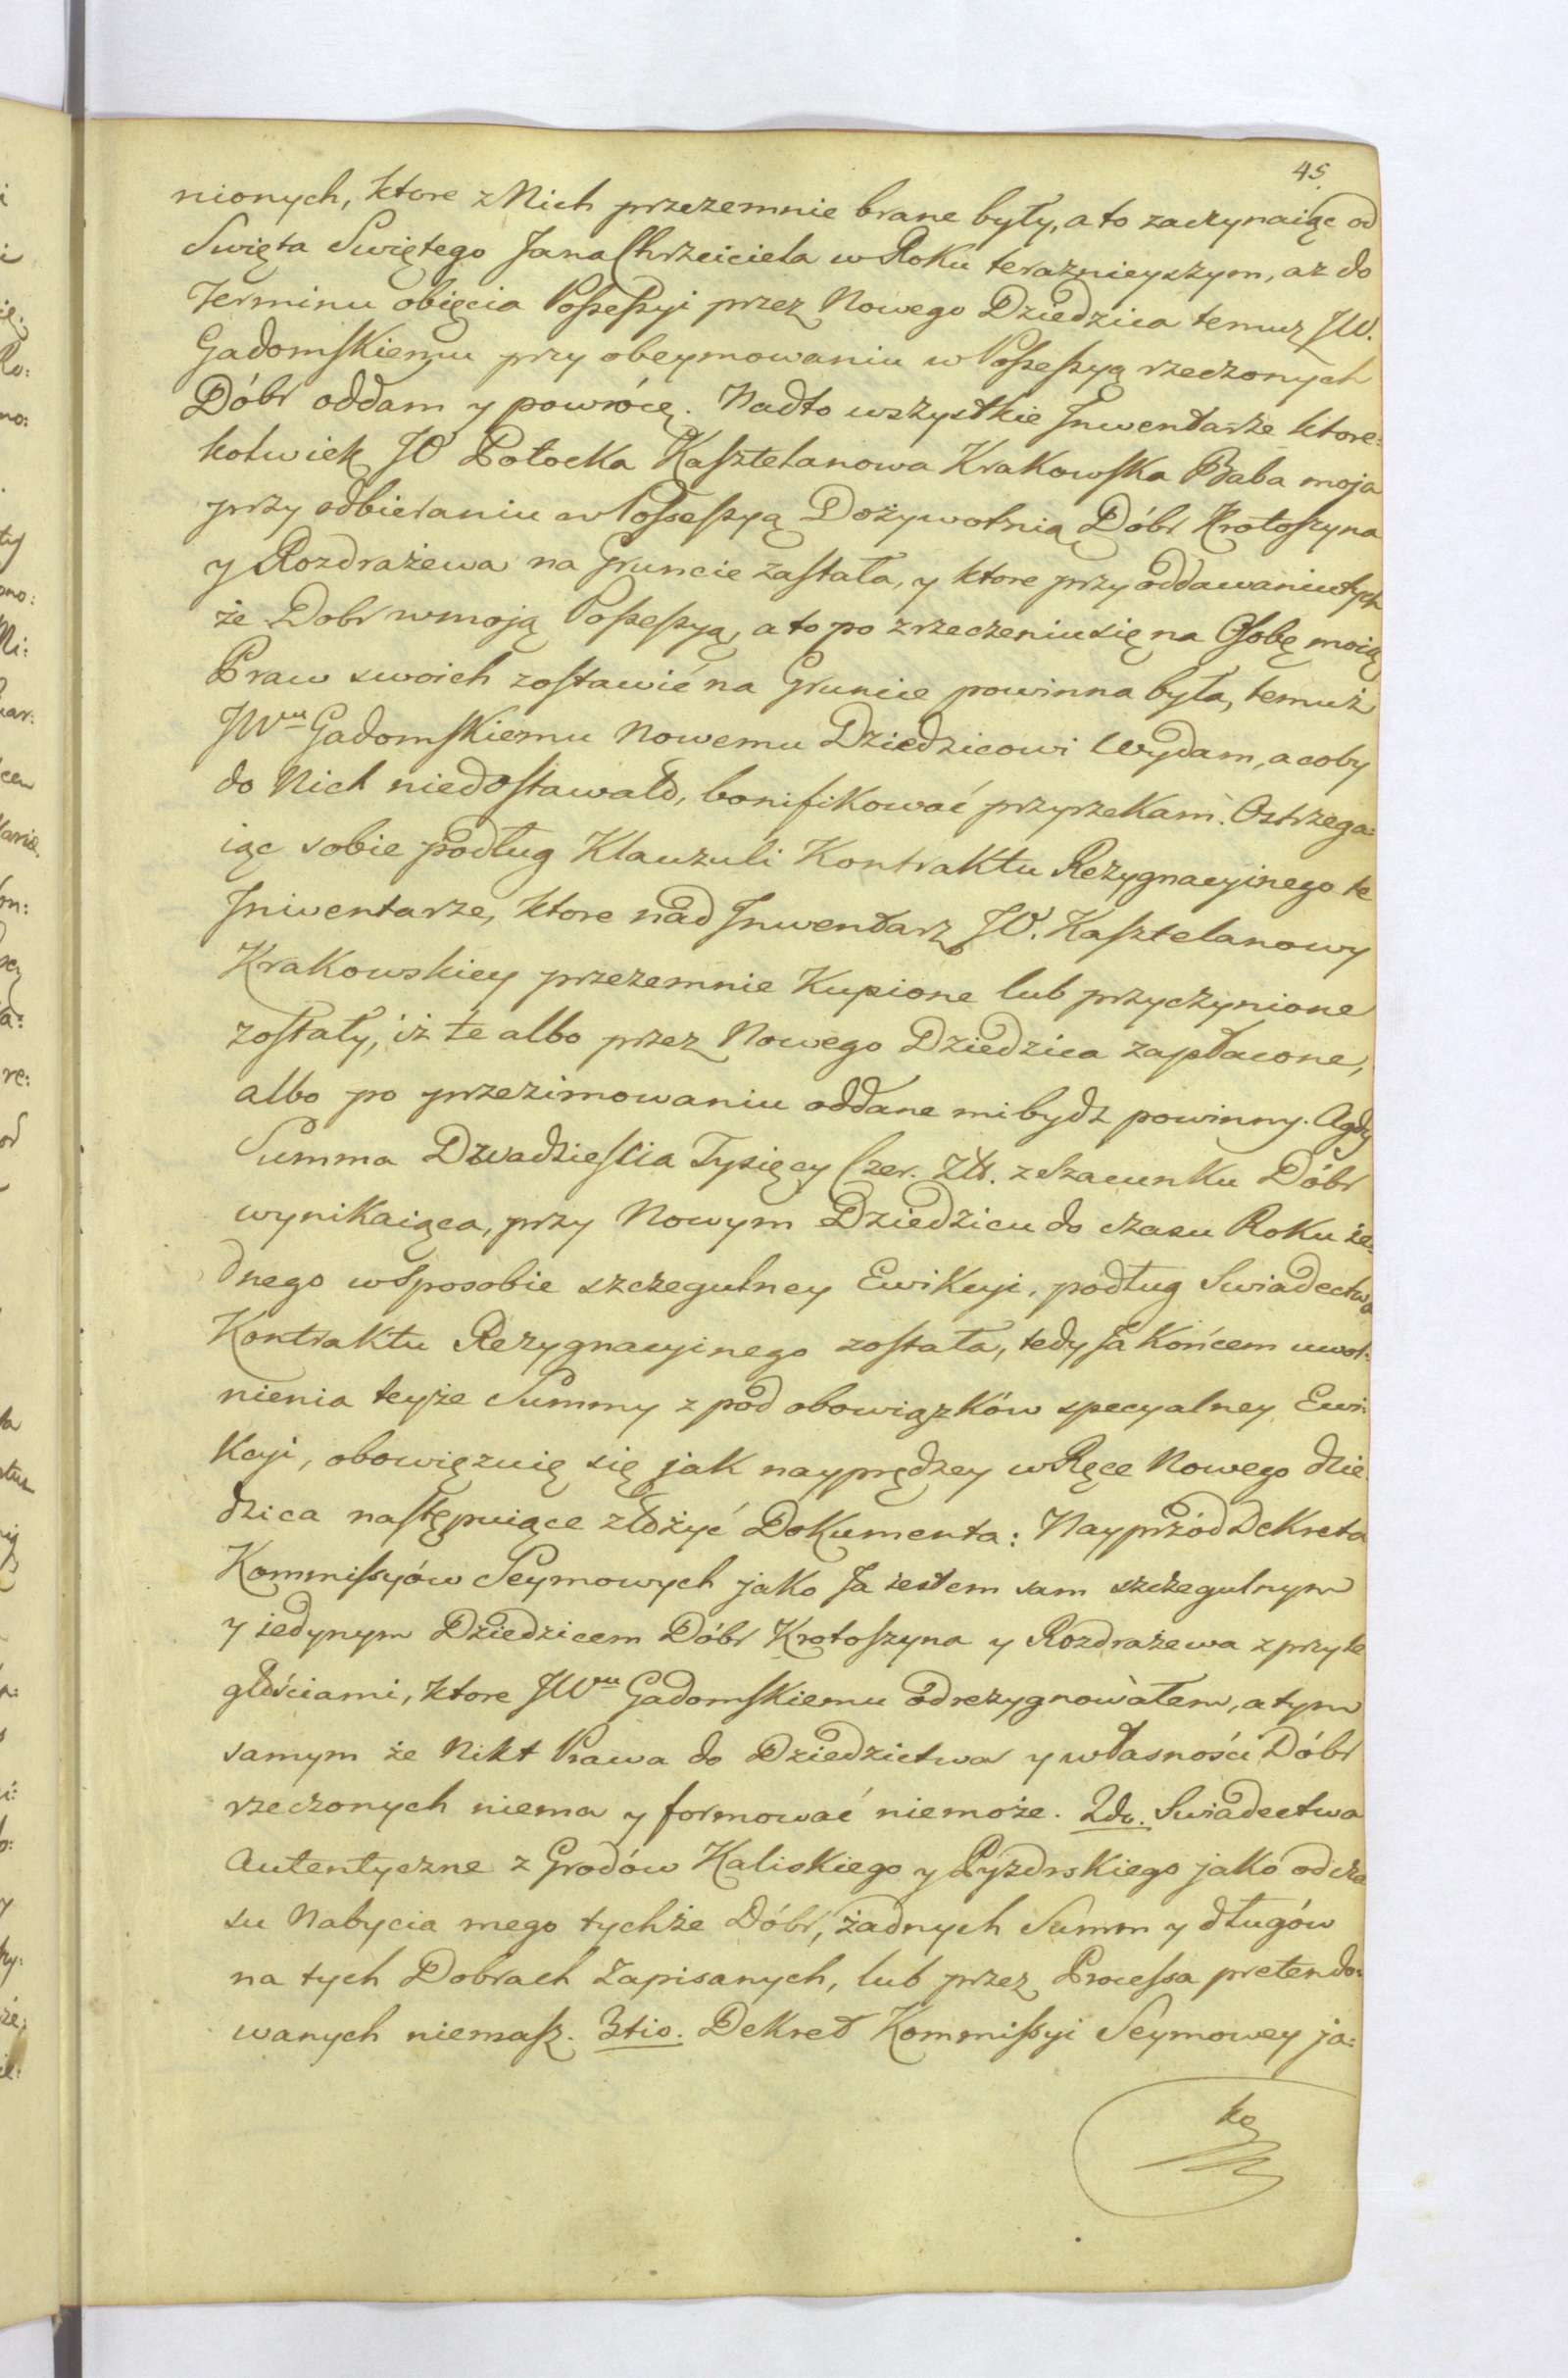 45.
nionych, ktore z Nich przezemnie brane były, a to zaczynaiąc od
Swięta Swiętego Jana Chrzciciela w Roku teraznieyszym, az do
Terminu obięcia Possessyi przez Nowego Dziedzica temuz JW.
Gadomskiemu przy obeymowaniu w Possessyą rzeczonych
Dóbr oddam y powrócę. Nadto wszystkie Inwentarze ktore=
kolwiek JO Potocka Kasztelanowa Krakowska Baba moja
przy odbieraniu w Possessyą Dożywotnią Dóbr Krotoszyna
y Rozdrażewa na Gruncie zastała, y ktore przy oddawaniu tych
że Dobr w moją Possessyą, a to po zrzeczeniu się na Osobę moią
Praw swoich zostawić na Gruncie powinna była, temuż
JWmu Gadomskiemu Nowemu Dziedzicowi Wydam, a coby
do Nich niedostawało, bonifikować przyrzekam. Ostrzega=
iąc sobie podług Klauzuli Kontraktu Rezygnacyinego te
Inwentarze, ktore nad Inwentarz JO. Kasztelanowy
Krakowskiey przezemnie Kupione lub przyczynione
zostały, iż te albo przez Nowego Dziedzica zapłacone,
albo po przezimowaniu oddane mi bydz powinny. A gdy
Summa Dwadziescia Tysięcy Czer. Złł. z Szacunku Dóbr
wynikaiąca, przy Nowym Dziedzicu do czasu Roku ie=
dnego w Sposobie szczegulney Ewikcyi, podług Swiadectwa
Kontraktu Rezygnacyinego została, tedy Ja Końcem uwol=
nienia teyże Summy z pod obowiązków specyalney Ewi
kcyi, obowięzuię się jak nayprędzey w Ręce Nowego dzie
dzica następuiące złożyć Dokumenta: Nayprzód Dekreta
Kommissyów Seymowych jako Ja iestem sam szczegulnym
y iedynym Dziedzicem Dóbr Krotoszyna y Rozdrażewa z przyle
głościami, ktore JWmu Gadomskiemu odrezygnowałem, a tym
samym że Nikt Prawa do Dziedzictwa y własności Dóbr
rzeczonych niema y formować niemoże. 2do. Swiadectwa
Autentyczne z Grodów Kaliskiego y Pyzdrskiego jako od cza
su Nabycia mego tychże Dóbr, żadnych Summ y długów
na tych Dobrach Zapisanych, lub przez Processa pretendo=
wanych niemasz. 3tio. Dekret Kommissyi Seymowey ja=
ko